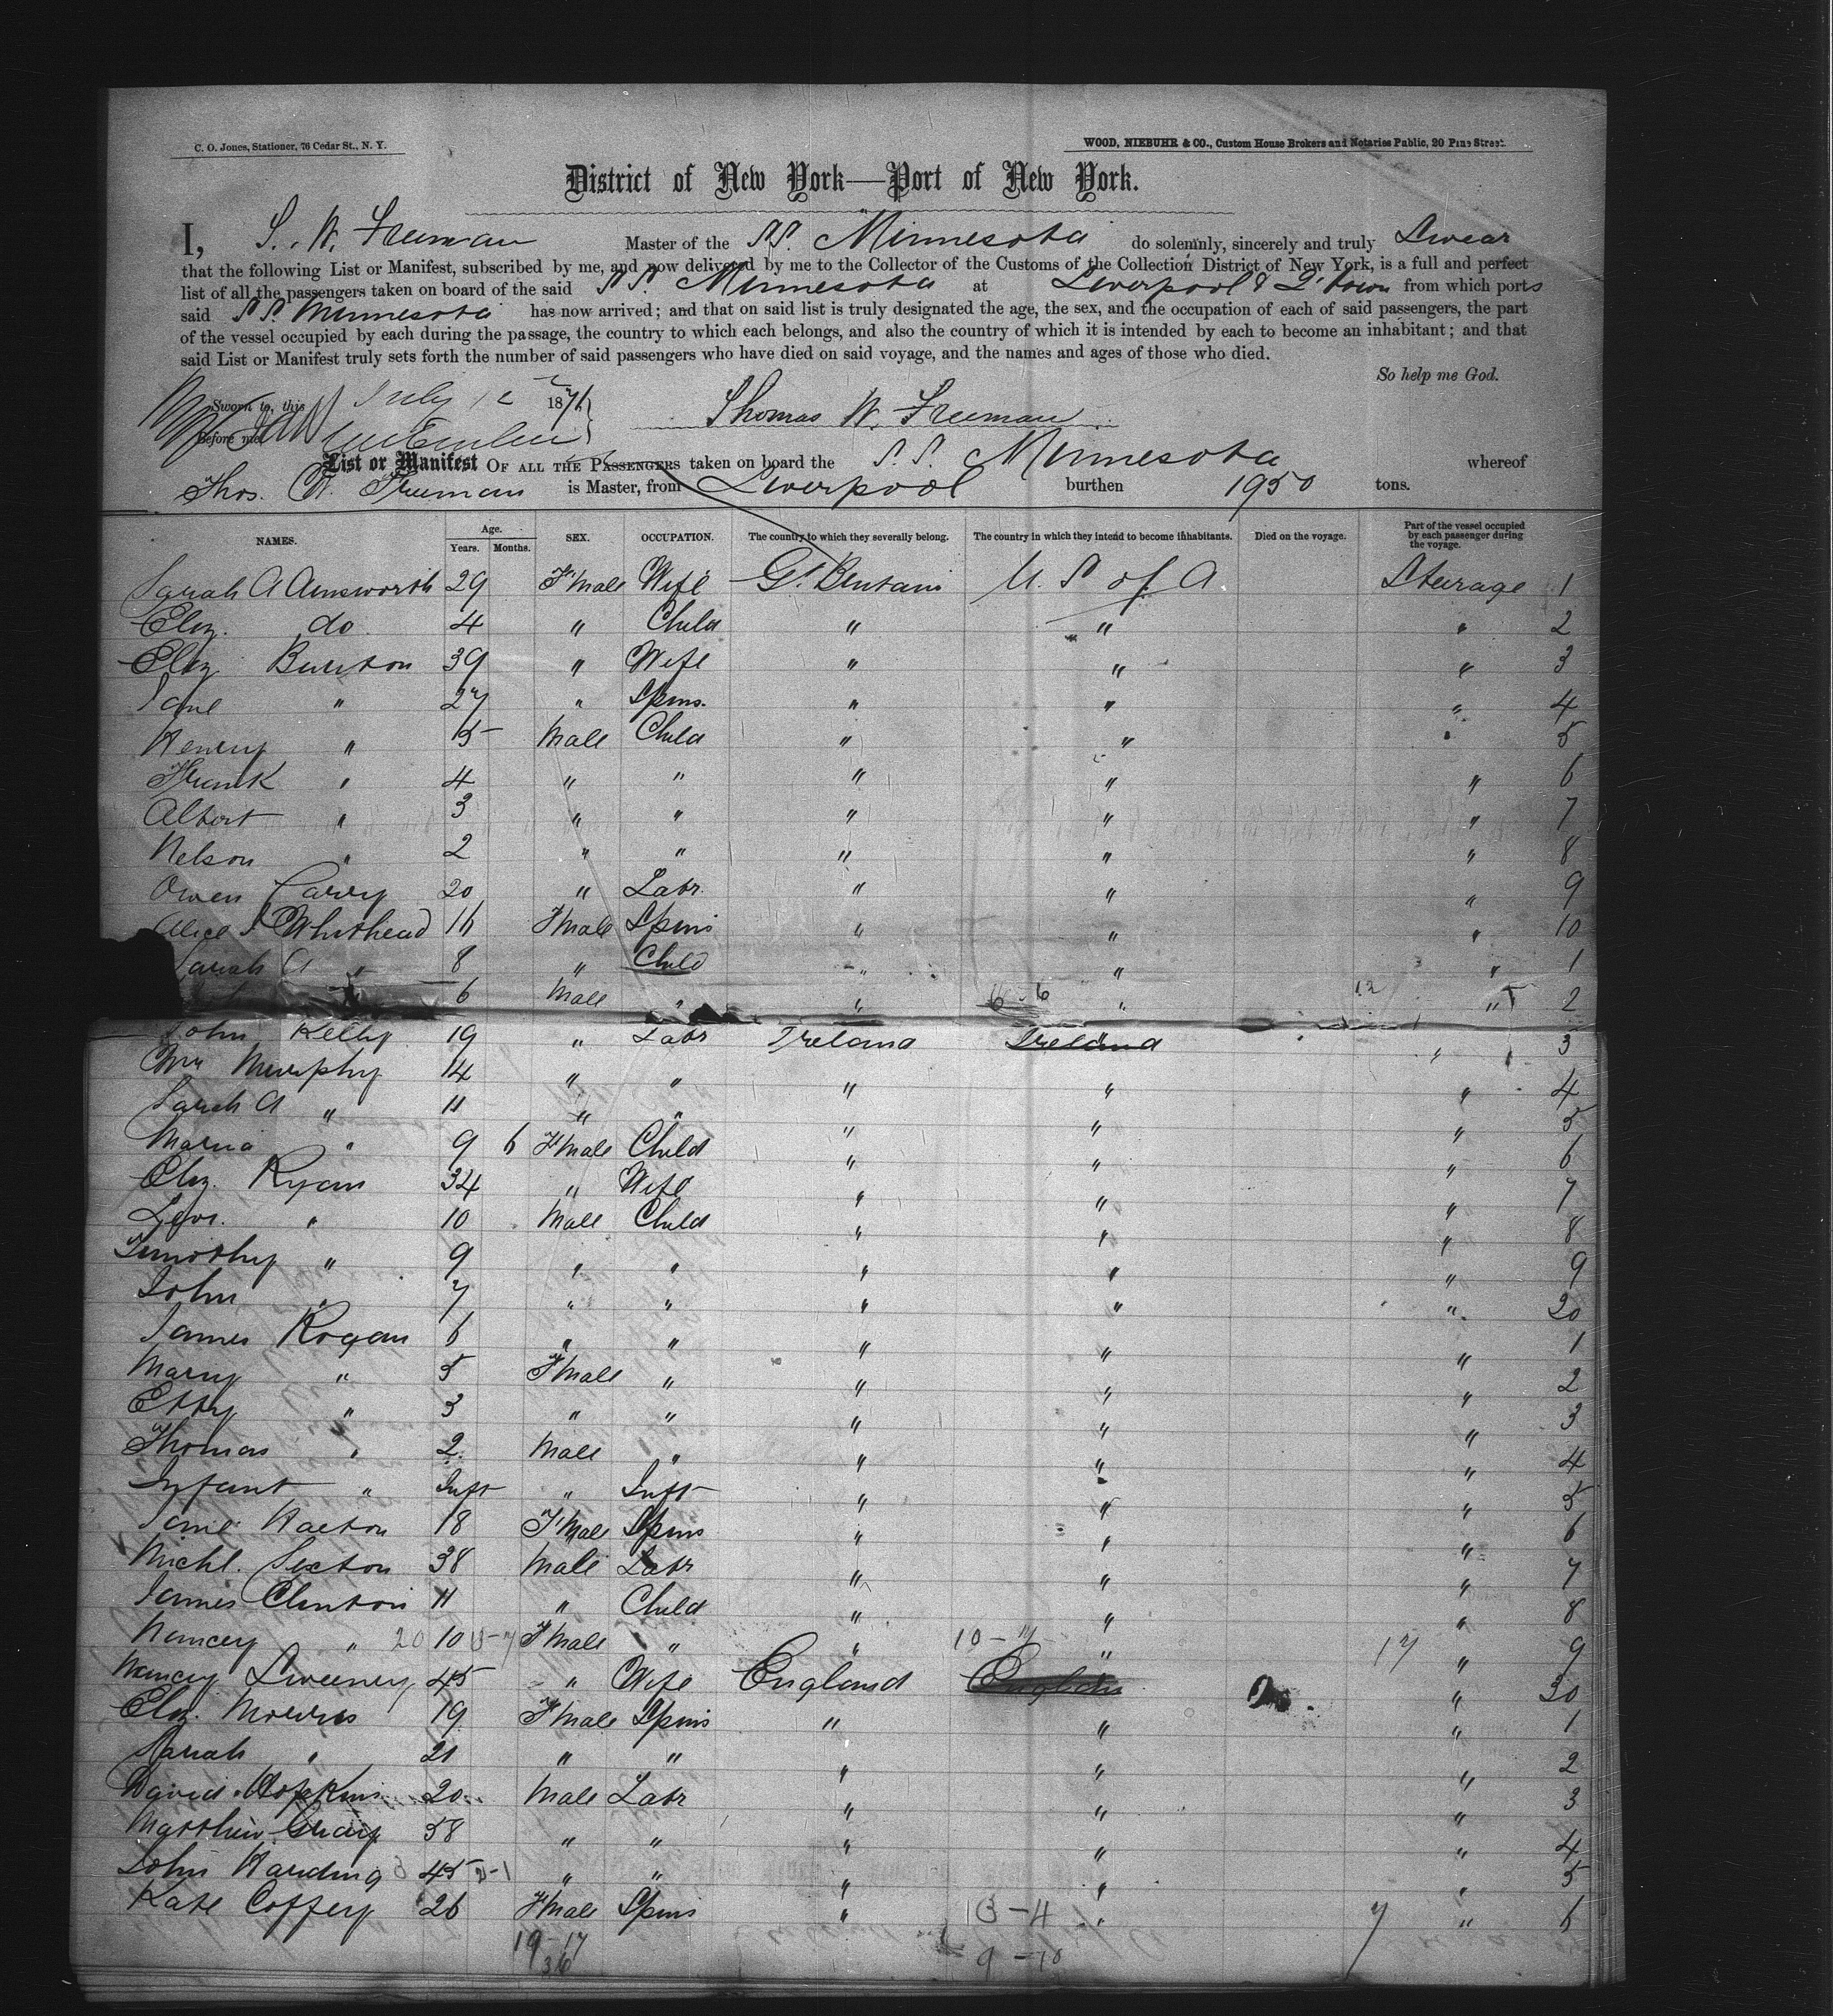 C. O. Jones, Stationer, 76 Cedar St., N. Y.
WOOD, NIEBUHR & CO., Custom House Brokers and Notaries Public, 20 Pine Street.
District of New York—Port of New York.
I, S. W. Freeman Master of the S.S. Minnesota do solemnly, sincerely and truly Swear
that the following List or Manifest, subscribed by me, and now delivered by me to the Collector of the Customs of the Collection District of New York, is a full and perfect
list of all the passengers taken on board of the said S.S. Minnesota at Liverpool & Q'town from which ports
said S.S. Minnesota has now arrived; and that on said list is truly designated the age, the sex, and the occupation of each of said passengers, the part
of the vessel occupied by each during the passage, the country to which each belongs, and also the country of which it is intended by each to become an inhabitant; and that
said List or Manifest truly sets forth the number of said passengers who have died on said voyage, and the names and ages of those who died.
So help me God.
Sworn to, this July 12 1871
Thomas W. Freeman
Before me
List or Manifest OF ALL THE PASSENGERS taken on board the S.S. Minnesota whereof
Thos. W. Freeman is Master, from Liverpool burthen 1950 tons.
NAMES. Age. Years. Months. SEX. OCCUPATION. The country to which they severally belong. The country in which they intend to become inhabitants. Died on the voyage. Part of the vessel occupied by each passenger during the voyage.
Sarah A Ainsworth 29 F'male Wife Gt Britain U. S of A Steerage 1
Eliz. do 4 " Child " " " 2
Eliz Burton 39 " Wife " " " 3
Jane " 27 " Spins. " " " 4
Henry " 5 Male Child " " " 5
Frank " 4 " " " " " 6
Albert " 3 " " " " " 7
Nelson " 2 " " " " " 8
Owen Carry 20 " Labr. " " " 9
Alice S Whithead 16 F'male Spins " " " 10
Sarah A " 8 " Child " " " 1
6 Male " " 6 - 6 " 12 " 2
John Kelly 19 " Labr Ireland Ireland " " 3
Wm Murphy 14 " " " " " 4
Sarah A " 11 " " " " " 5
Maria " 9 6 F'male Child " " " 6
Eliz. Ryan 34 " Wife " " " 7
" 10 Male Child " " " 8
Timothy " 9 " " " " " 9
John " 7 " " " " " 20
James Rogan 6 " " " " " 1
Mary " 5 F'male " " " " 2
Etty " 3 " " " " " 3
Thomas " 2 Male " " " " 4
Infant " Inft " Inft " " " 5
Jane 18 F'male Spins " " " 6
Michl. Sexton 38 Male Labr " " " 7
James Clinton 11 " Child " " " 8
Nancy " 20 10 13-7 F'male " " 10 - 7 " 17 " 9
Nancy Sweeney 45 " Wife England England " 30
Eliz. Morris 19 F'male Spins " " " 1
Sarah " 21 " " " " " 2
David Hopkins 20 Male Labr " " " 3
Matthew 58 " " " " " 4
John Harding 45 " " " " " 5
Kate Coffey 26 F'male Spins " 3 - 4 " 7 " 6
19 - 17
36
9 - 10